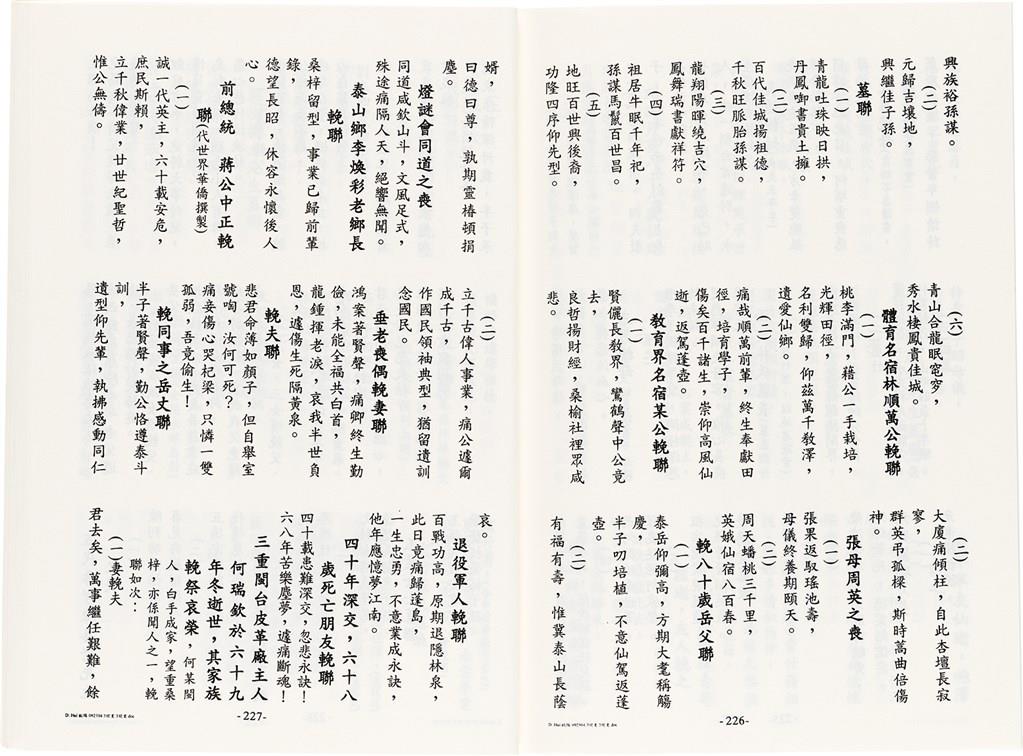 興族裕孫謀。
（二）
元歸吉壤地，
興繼佳子孫。
墓聯
（一）
青龍吐珠映日拱，
丹鳳啣書貴土擁。
（二）
百代佳城揚祖德，
千秋旺脈胎孫謀。
（三）
龍翔陽暉繞吉穴，
鳳舞瑞書獻祥符。
（四）
祖居牛眠千年祀，
孫謀馬鬣百世昌。
（五）
地旺百世興後裔，
功隆四序仰先型。
（六）
青山合龍眠窀穸，
秀水棲鳳貴佳城。
體育名宿林順萬公輓聯
（一）
桃李滿門，藉公一手栽培，
光輝田徑，
名利雙歸，仰茲萬千教澤，
遺愛仙鄉。
（二）
痛哉順萬前輩，終生奉獻田
徑，培育學子，
傷矣百千諸生，崇仰高風仙
逝，返駕蓬壺。
教育界名宿某公輓聯
（一）
賢儷長教界，鸞鶴聲中公竟
去，
良哲揚財經，桑榆社裡眾咸
悲。
（二）
大廈痛傾柱，自此杏壇長寂
寥，
群英弔孤樑，斯時萬曲倍傷
神。
張母周英之喪
（一）
張果返馭瑤池壽，
母儀終養期頤天。
（二）
周天蟠桃三千里，
英娥仙宿八百春。
輓八十歲岳父聯
（一）
泰岳仰彌高，方期大耄稱觴
慶，
半子叨培植，不意仙駕返蓬
壺。
（二）
有福有壽，惟冀泰山長蔭
-226-
婿，
曰德曰尊，孰期靈椿頓捐
塵。
燈謎會同道之喪
同道咸欽山斗，文風足式，
殊途痛隔人天，絕響無聞。
泰山鄉李煥彩老鄉長
輓聯
桑梓留型，事業已歸前輩
錄，
德望長昭，休容永懷後人
心。
前總統　蔣公中正輓
聯（代世界華僑撰製）
（一）
誠一代英主，六十載安危，
庶民斯賴，
立千秋偉業，廿世紀聖哲，
惟公無儔。
（二）
立千古偉人事業，痛公遽爾
成千古，
作國民領袖典型，猶留遺訓
念國民。
垂老喪偶輓妻聯
鴻案著賢聲，痛卿終生勤
儉，未能全福共白首，
龍鍾揮老淚，哀我半世負
恩，遽傷生死隔黃泉。
輓夫聯
悲君命薄如顏子，但自舉室
號啕，汝何可死？
痛妾傷心哭杞梁，只憐一雙
孤弱，吾竟偷生！
輓同事之岳丈聯
半子著賢聲，勤公恪遵泰斗
訓，
遺型仰先輩，執拂感動同仁
哀。
退役軍人輓聯
百戰功高，原期退隱林泉，
此日竟痛歸蓬島，
一生忠勇，不意業成永訣，
他年應憶夢江南。
四十年深交，六十八
歲死亡朋友輓聯
四十載患難深交，忽悲永訣！
六八年苦樂塵夢，遽痛斷魂！
三重閩台皮革廠主人
何瑞欽於六十九
年冬逝世，其家族
輓祭哀榮，何某閩
人，白手成家，望重桑
梓，亦係聞人之一，輓
聯如次：
（一）妻輓夫
君去矣，萬事繼任艱難，餘
-227-